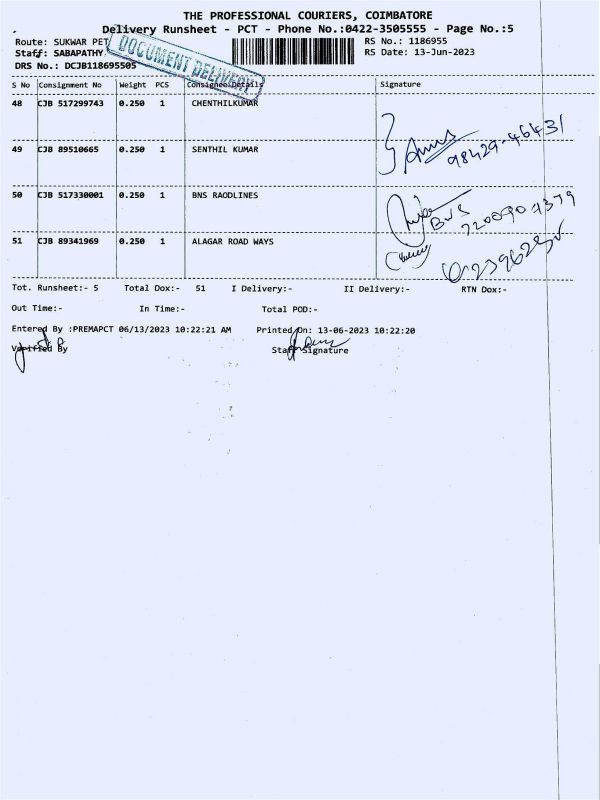 THE PROFESSIONAL COURIERS, COIMBATORE
Delivery Runsheet - PCT - Phone No.:0422-3505555 - Page No.:5
Route: SUKWAR PET RS No.: 1186955
Staff: SABAPATHY RS Date: 13-Jun-2023
DRS No.: DCJB118695505
DOCUMENT DELIVERY
S No Consignment No Weight PCS Consignee Details Signature
48 CJB 517299743 0.250 1 CHENTHILKUMAR
98429-46431
49 CJB 89510665 0.250 1 SENTHIL KUMAR
50 CJB 517330001 0.250 1 BNS RAODLINES
BVS
51 CJB 89341969 0.250 1 ALAGAR ROAD WAYS
Tot. Runsheet:- 5 Total Dox:- 51 I Delivery:- II Delivery:- RTN Dox:-
Out Time:- In Time:- Total POD:-
Entered By :PREMAPCT 06/13/2023 10:22:21 AM Printed On: 13-06-2023 10:22:20
Verified By Staff Signature